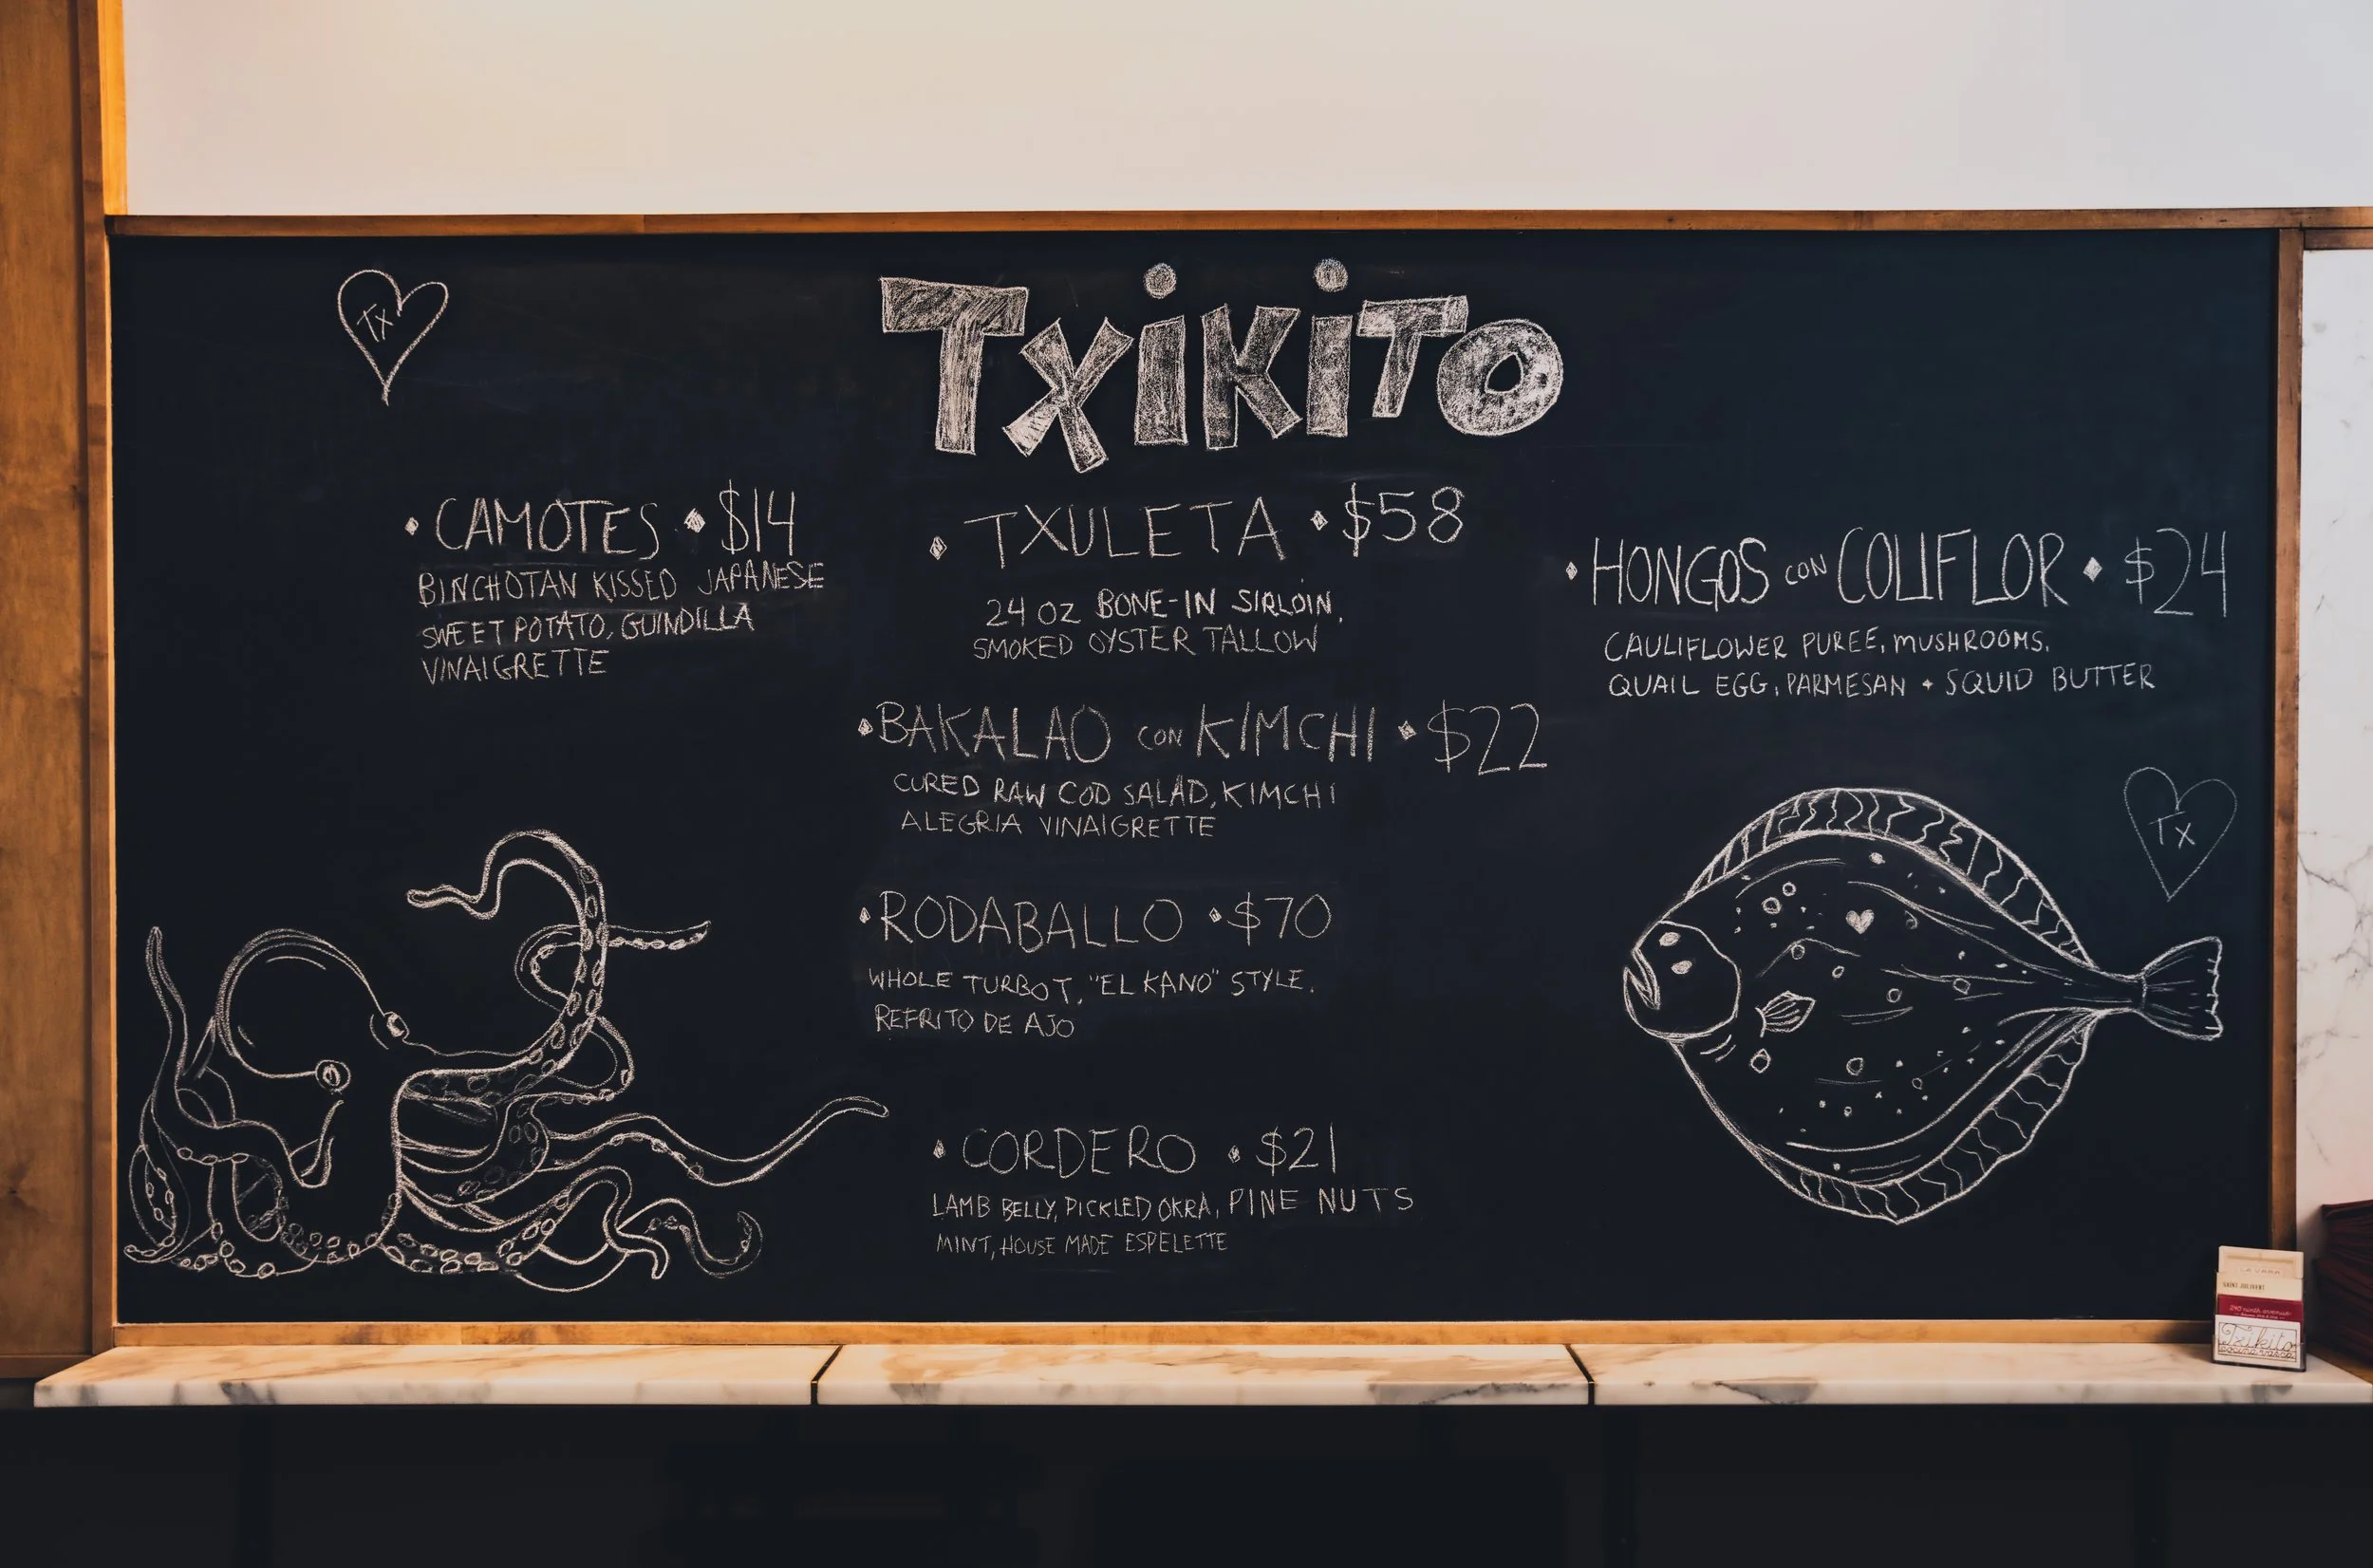 Tx
TXiKiTO
CAMOTES • $14
BINCHOTAN KISSED JAPANESE
SWEET POTATO, GUINDILLA
VINAIGRETTE
TXULETA • $58
24 OZ BONE-IN SIRLOIN,
SMOKED OYSTER TALLOW
BAKALAO CON KIMCHI • $22
CURED RAW COD SALAD, KIMCHI
ALEGRIA VINAIGRETTE
RODABALLO • $70
WHOLE TURBOT, "EL KANO" STYLE,
REFRITO DE AJO
CORDERO • $21
LAMB BELLY, PICKLED OKRA, PINE NUTS
MINT, HOUSE MADE ESPELETTE
HONGOS CON COLIFLOR • $24
CAULIFLOWER PUREE, MUSHROOMS,
QUAIL EGG, PARMESAN + SQUID BUTTER
Tx
240 ninth avenue
Txikito